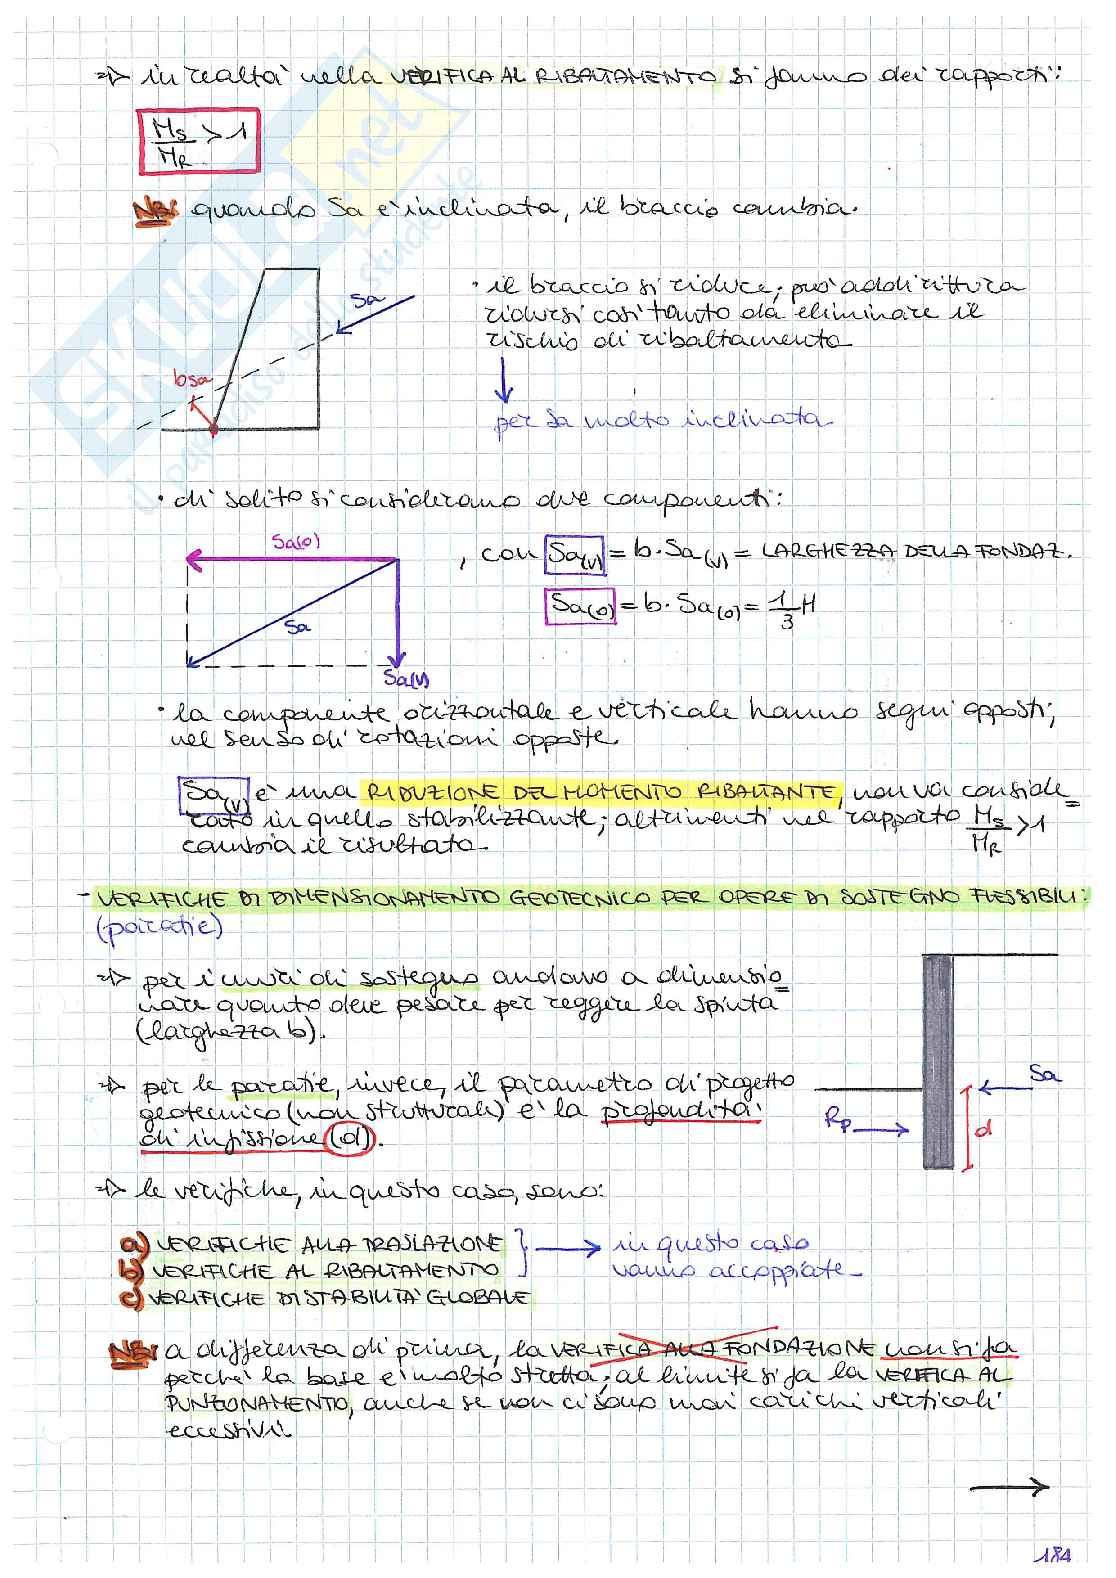 => in realtà nella VERIFICA AL RIBALTAMENTO si fanno dei rapporti:
Ms/MR > 1
NB: quando Sa è inclinata, il braccio cambia.
Sa
bsa
• il braccio si riduce; può addirittura
ridursi così tanto da eliminare il
rischio di ribaltamento
per Sa molto inclinata
• di solito si considerano due componenti:
Sa(o)
Sa
Sa(v)
, con Sa(v) = b・Sa(v) = LARGHEZZA DELLA FONDAZ.
Sa(o) = b・Sa(o) = 1/3 H
• la componente orizzontale e verticale hanno segni opposti;
nel senso di rotazioni opposte
Sa(v) è una RIDUZIONE DEL MOMENTO RIBALTANTE, non va conside=
rato in quello stabilizzante; altrimenti nel rapporto Ms/MR > 1
cambia il risultato.
- VERIFICHE DI DIMENSIONAMENTO GEOTECNICO PER OPERE DI SOSTEGNO FLESSIBILI:
(paratie)
=> per i muri di sostegno andavo a dimensio=
nare quanto deve pesare per reggere la spinta
(larghezza b).
=> per le paratie, invece, il parametro di progetto
geotecnico (non strutturale) è la profondità
di infissione (d).
Sa
Rp
d
=> le verifiche, in questo caso, sono:
a) VERIFICHE ALLA TRASLAZIONE
b) VERIFICHE AL RIBALTAMENTO
c) VERIFICHE DI STABILITÀ GLOBALE
in questo caso
vanno accoppiate
NB: a differenza di prima, la VERIFICA ALLA FONDAZIONE non si fa
perché la base è molto stretta; al limite si fa la VERIFICA AL
PUNZONAMENTO, anche se non ci sono mai carichi verticali
eccessivi.
184
SKUOLA.net
il paradiso dello studente